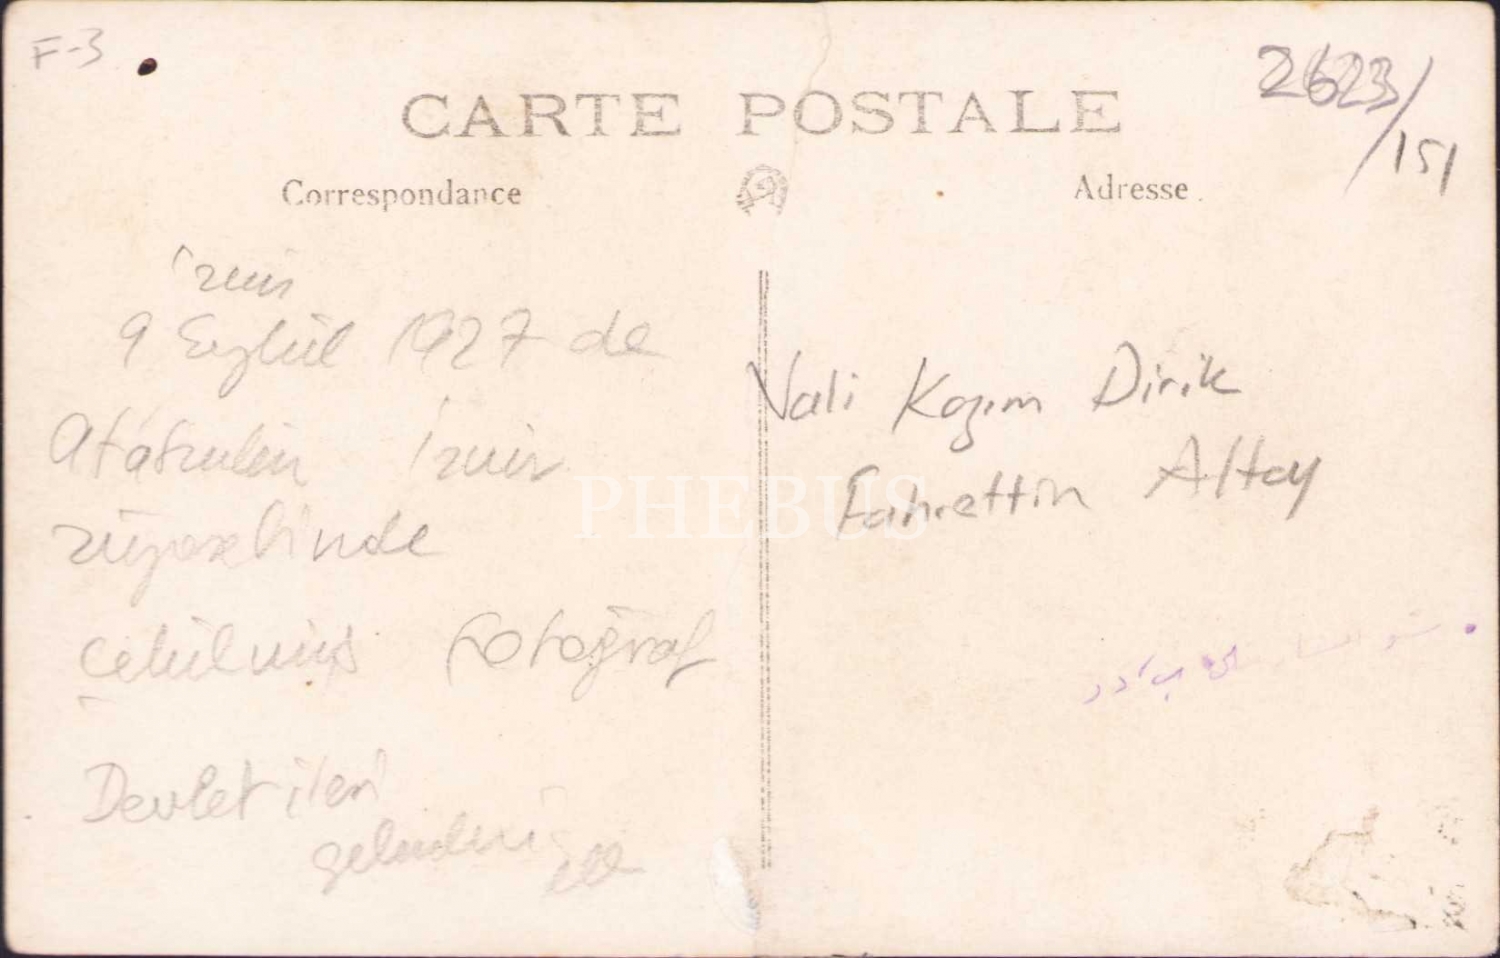 F-3
2623/151
CARTE POSTALE
Correspondance
Adresse
İzmir
9 Eylül 1927 de
Atatürkün İzmir
ziyaretinde
çekilmiş fotoğraf
Devlet ileri
gelenleri ile
Vali Kazım Dirik
Fahrettin Altay
PHEBUS